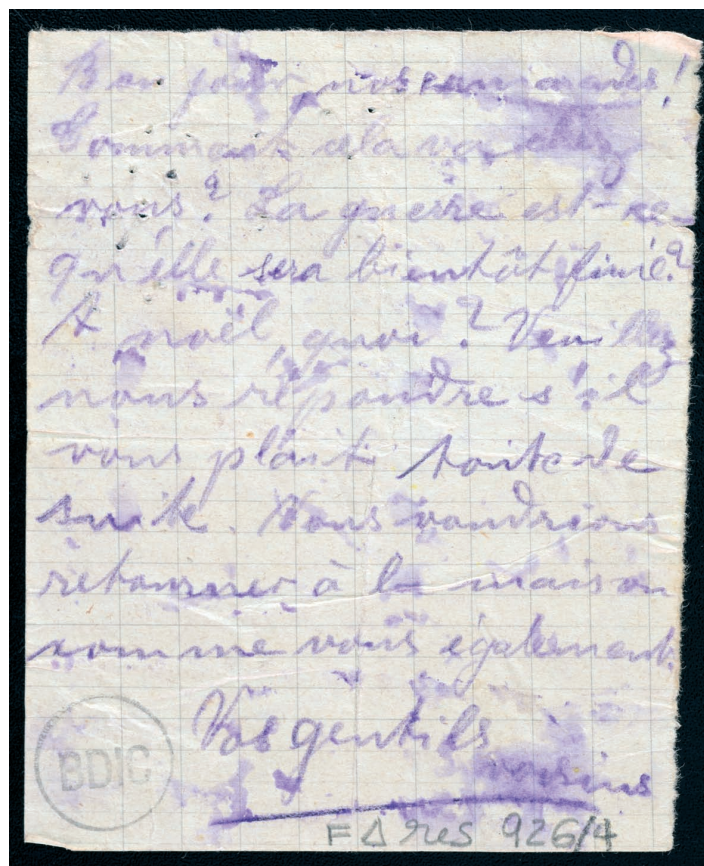 Bon jour, nos camarades!
Commant cela va chez
vous? La guerre est-ce
qu'elle sera bientôt finie?
A noël, quoi? Veuillez
nous répondre s'il
vous plait toute de
suite. Nous voudrions
retourner à la maison
comme vous également.
Vos gentils
voisins
BDIC
F∆ res 926/4